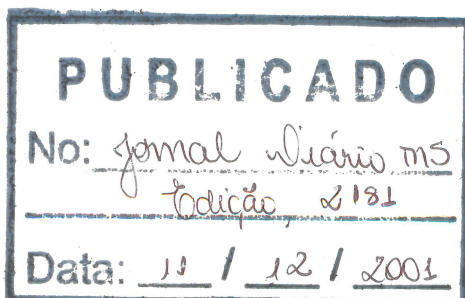 PUBLICADO
No: Jornal Diário MS
Edição, 2181
Data: 11 / 12 / 2001